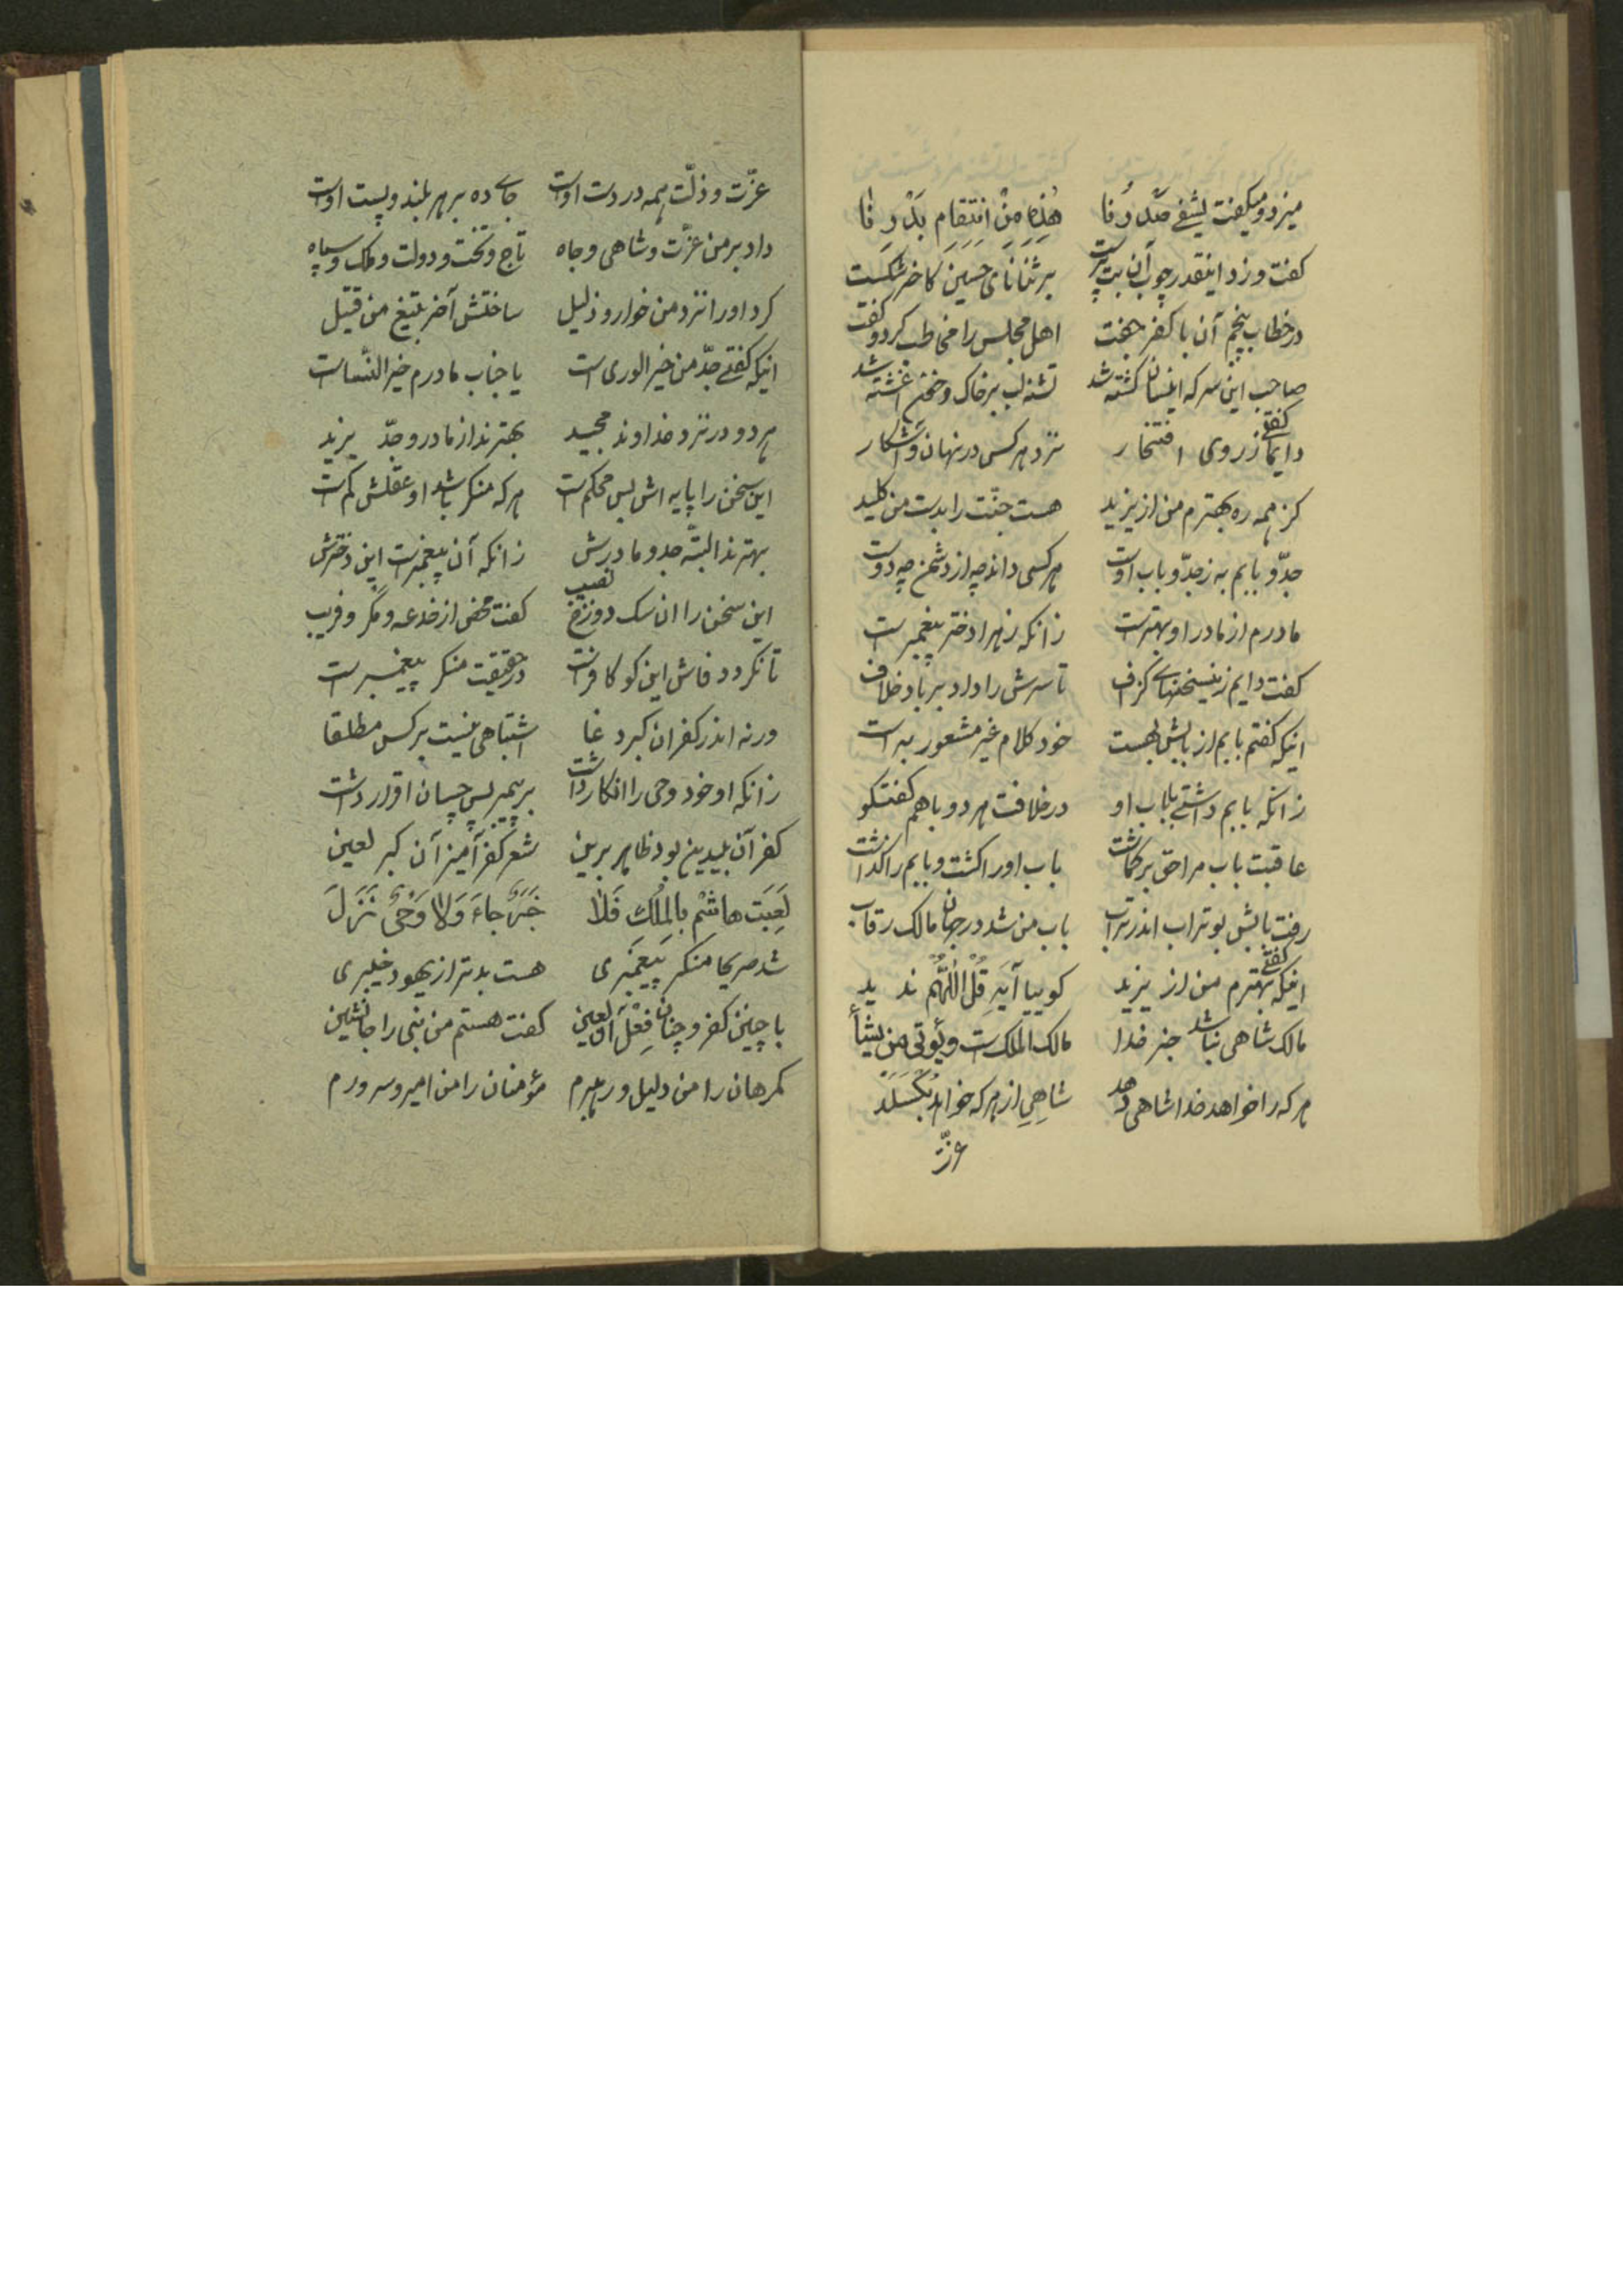 میزد و میگفت یشفی صدرنا هذه من انتقام بدرنا
گفت و زد اینقدر چوب آن بت پرست بر ثنانای حسین کاخر شکست
در خطاب پنجم آن با کفر جفت اهل مجلس را مخاطب کرد و گفت
صاحب این سر که اینسان کشته شد تشنه لب بر خاک و خون آغشته شد
دایما گفتی ز روی افتخار نزد هر کس در نهان و آشکار
کز همه ره بهترم من از یزید هست جنّت را بدست من کلید
جدّ و بابم به ز جدّ و باب اوست هر کسی داند چه از دشمن چه دوست
مادرم از مادر او بهترست زانکه زهرا دختر پیغمبرست
گفت دایم زینسخنهای گزاف تا سرش را داد بر باد خلاف
اینکه گفتم بابم از بابش بهست خود کلام غیر مشعور
زانکه بابم داشتی با باب او در خلافت هر دو با هم گفتگو
عاقبت باب مرا حق برگماشت باب او را کشت و بابم را گذاشت
رفت بابش بوتراب اندر تراب باب من شد در جهان مالک رقاب
اینکه گفتی بهترم من از یزید گوییا آیه قُل اللّٰهُمّ ندید
مالک شاهی نباشد جز خدا مالک الملک ست و یؤتی من یشأ
هر که را خواهد خدا شاهی دهد شاهی از هر که خواهد بگسلد
عزّت
عزّت و ذلّت همه در دست اوست جای ده بر هر بلند و پست اوست
داد بر من عزّت و شاهی و جاه تاج و تخت و دولت و ملک و سپاه
کرد او را نزد من خوار و ذلیل ساختش آخر بتیغ من قتیل
اینکه گفتی جدّ من خیر الوری است یا جناب مادرم خیر النّساست
هر دو در نزد خداوند مجید بهترند از مادر و جدّ یزید
این سخن را پایه اش بس محکم ست هر که منکر باشد او عقلش کم ست
بهترند البتّه جد و مادرش زانکه آن پیغمبرست این دخترش
این سخن را ان سک دوزخ نصیب گفت محض از خدعه و مکر و فریب
تا نگردد فاش این کو کافرست در حقیقت منکر پیغمبرست
ورنه اندر کفر ان گبر دغا اشتباهی نیست بر کس مطلقا
زانکه او خود وحی را انکار داشت بر پیمبر پس چسان اقرار داشت
کفر آن بیدین بود ظاهر ببین شعر کفر آمیز آن گبر لعین
لَعِبَت هاشم بِالمُلک فَلا خَبَرٌ جاءَ وَلا وَحْیٌ نَزَلَ
شد صریحا منکر پیغمبری هست بدتر از یهود خیبری
با چنین کفر و چنان فعل آن لعین گفت هستم من نبی را جانشین
گمرهان را من دلیل و رهبرم مؤمنان را من امیر و سرورم